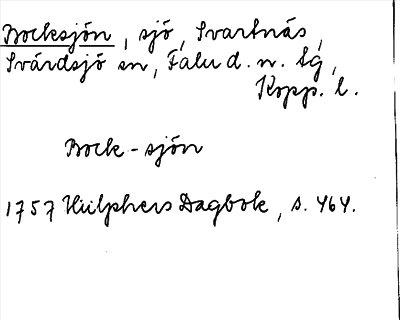 Bocksjön, sjö, Svartnäs,
Svärdsjö sn, Falu d. n. tg,
Kopp. l.
Bock-sjön
1757 Hülphers Dagbok, s. 464.